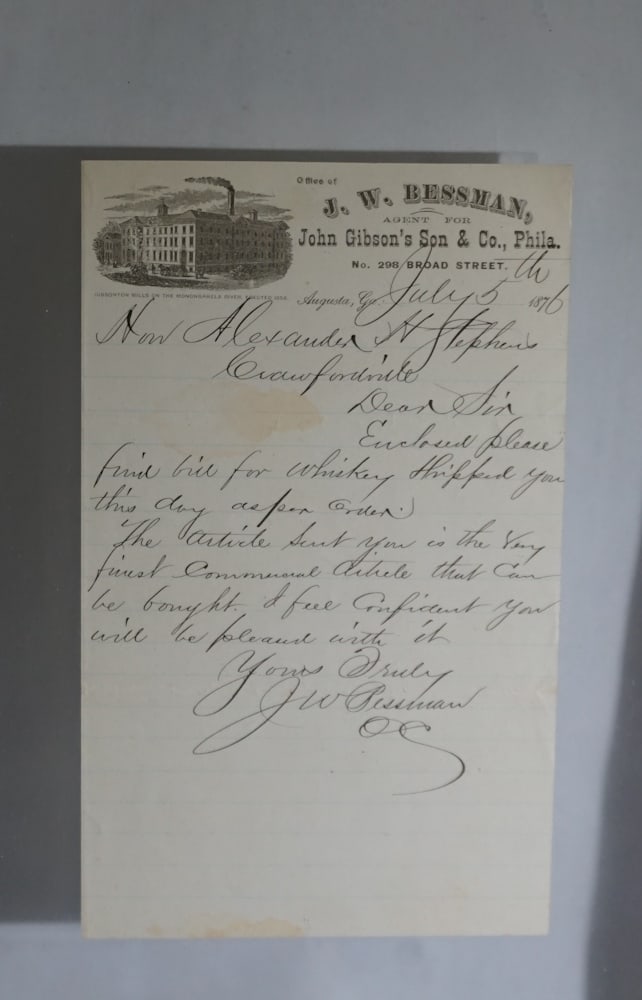 Office of
J. W. BESSMAN,
AGENT FOR
John Gibson's Son & Co., Phila.
No. 298 BROAD STREET.
GIBSONTON MILLS ON THE MONONGAHELA RIVER, ERECTED 1856.
Augusta, Ga. July 5th 1876
Hon Alexander H Stephens
Crawfordville
Dear Sir
Enclosed please
find bill for Whiskey Shipped you
this day as per order.
The article Sent you is the Very
finest Commercial Article that Can
be bought. I feel Confident you
will be pleased with it
Yours Truly
J W Bessman